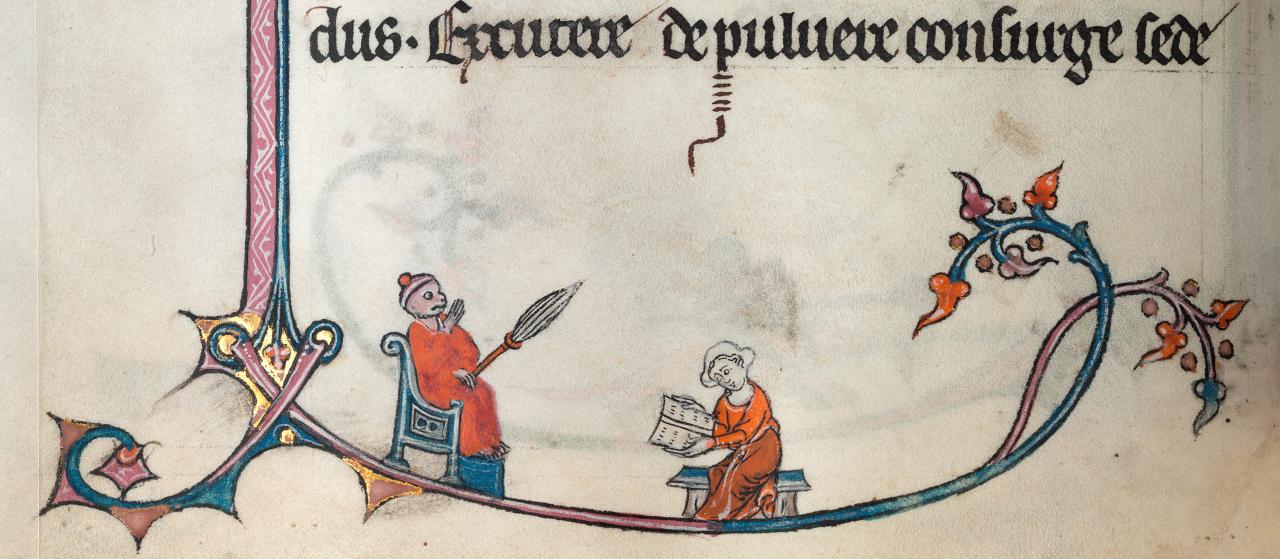 dus. Excutere de puluere consurge sede